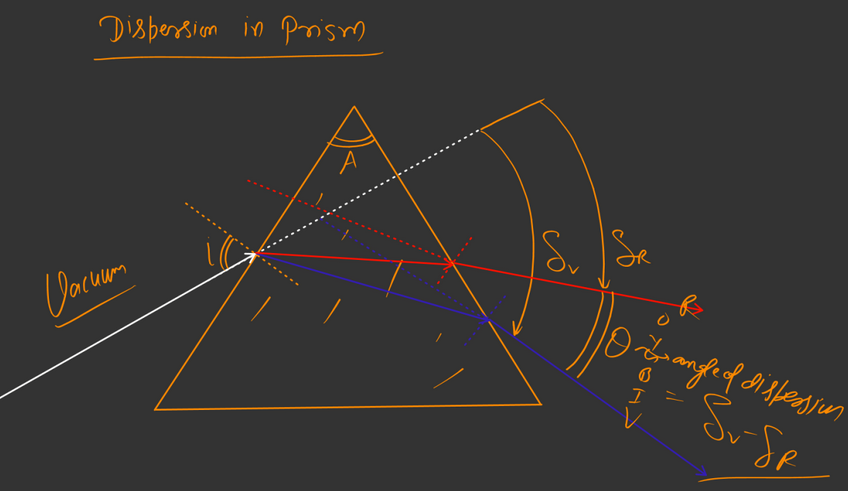 Dispersion in Prism
A
i
Vacuum
δv
δR
R
O
Y
θ → angle of dispersion
B
I
V
= δv - δR